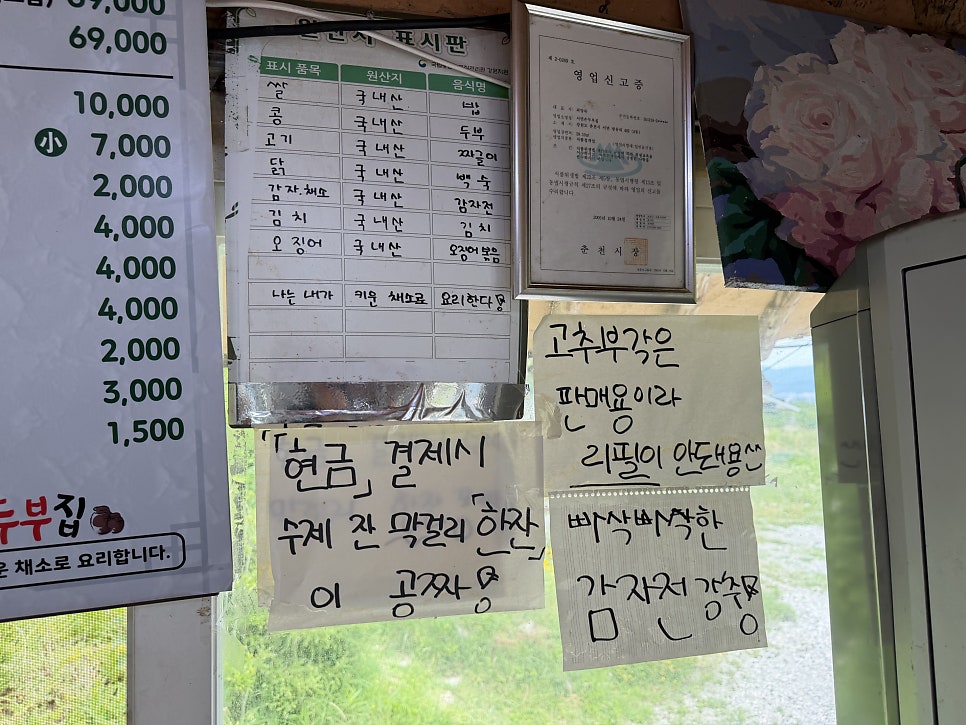 69,000
69,000
10,000
小 7,000
2,000
4,000
4,000
4,000
2,000
3,000
1,500
두부집
채소로 요리합니다.
원산지 표시판
표시 품목 원산지 음식명
쌀 국내산 밥
콩 국내산 두부
고기 국내산 짜글이
닭 국내산 백숙
감자.채소 국내산 감자전
김치 국내산 김치
오징어 국내산 오징어볶음
나는 내가 키운 채소로 요리한다
영업신고증
춘천시장
고추부각은
판매용이라
리필이 안돼용
「현금」 결제시
수제 잔 막걸리 「한잔」
이 공짜
빠삭빠삭한
감자전 강추